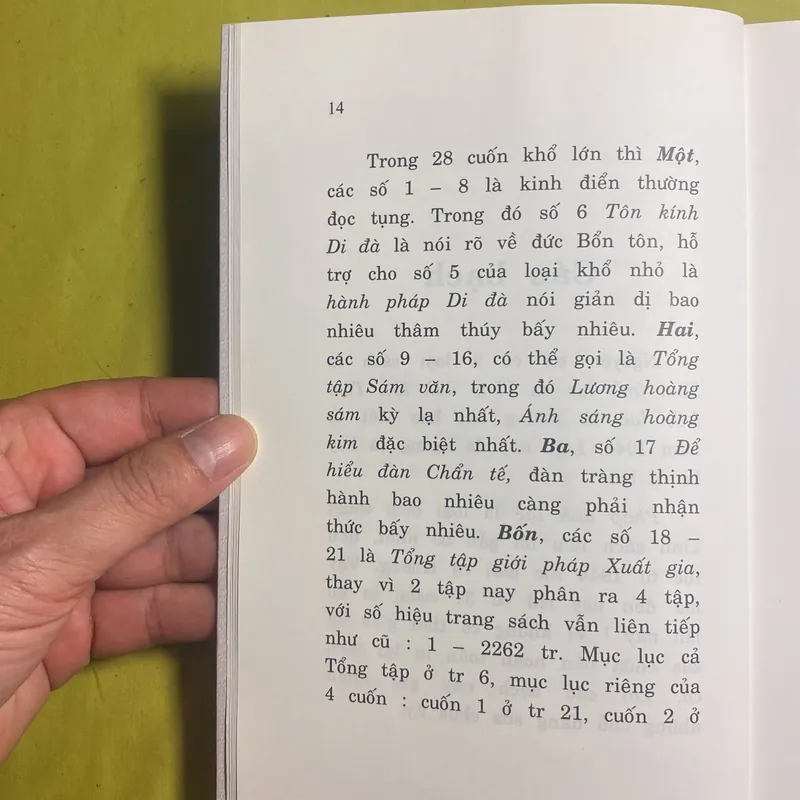 14
Trong 28 cuốn khổ lớn thì Một,
các số 1 – 8 là kinh điển thường
đọc tụng. Trong đó số 6 Tôn kính
Di đà là nói rõ về đức Bổn tôn, hỗ
trợ cho số 5 của loại khổ nhỏ là
hành pháp Di đà nói giản dị bao
nhiêu thâm thúy bấy nhiêu. Hai,
các số 9 – 16, có thể gọi là Tổng
tập Sám văn, trong đó Lương hoàng
sám kỳ lạ nhất, Ánh sáng hoàng
kim đặc biệt nhất. Ba, số 17 Để
hiểu đàn Chẩn tế, đàn tràng thịnh
hành bao nhiêu càng phải nhận
thức bấy nhiêu. Bốn, các số 18 –
21 là Tổng tập giới pháp Xuất gia,
thay vì 2 tập nay phân ra 4 tập,
với số hiệu trang sách vẫn liên tiếp
như cũ : 1 – 2262 tr. Mục lục cả
Tổng tập ở tr 6, mục lục riêng của
4 cuốn : cuốn 1 ở tr 21, cuốn 2 ở